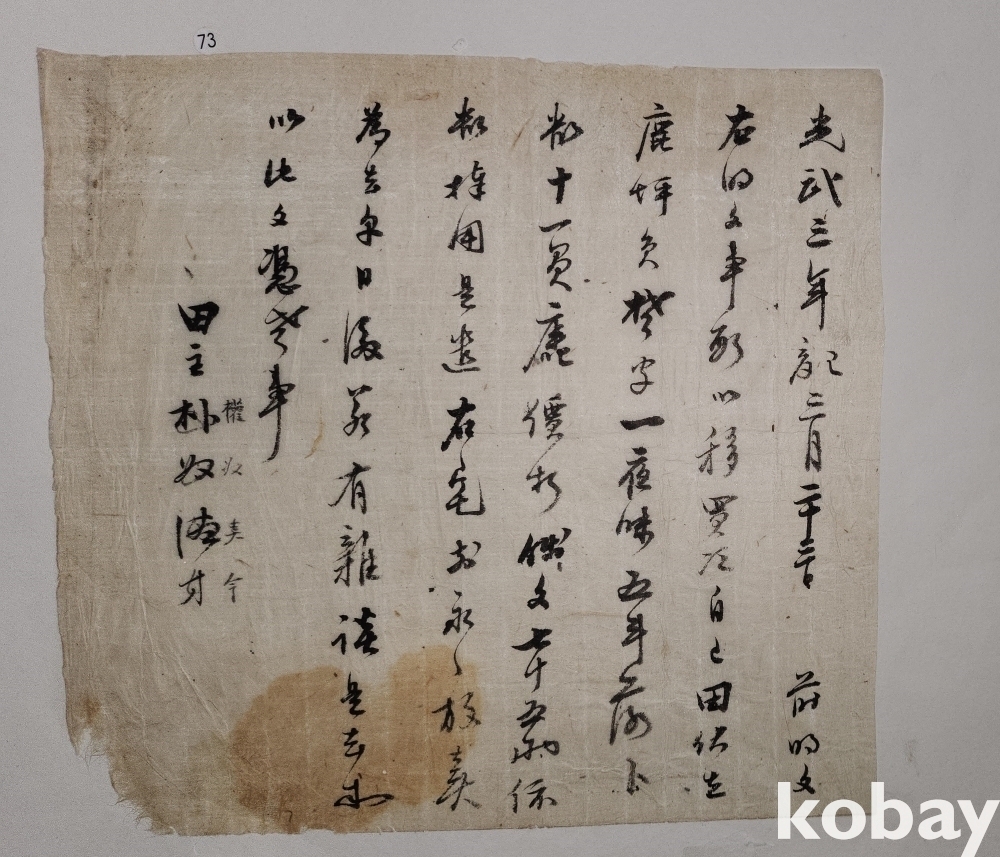 73
光武三年記三月二十二日 前明文
右明文事段以移買次自己田伏在
鹿坪員楚字一夜味五斗落卜
數十一負廑價折錢文七十五兩依
數捧用是遣右宅前永〻放賣
爲去乎日後若有雜談是去等
以此文憑考事
田主朴奴 
權奴
kobay